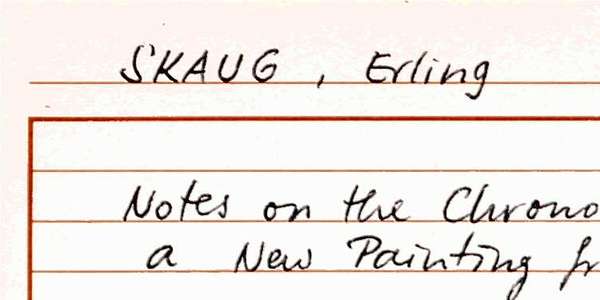 SKAUG, Erling
Notes on the Chrono
a New Painting fr